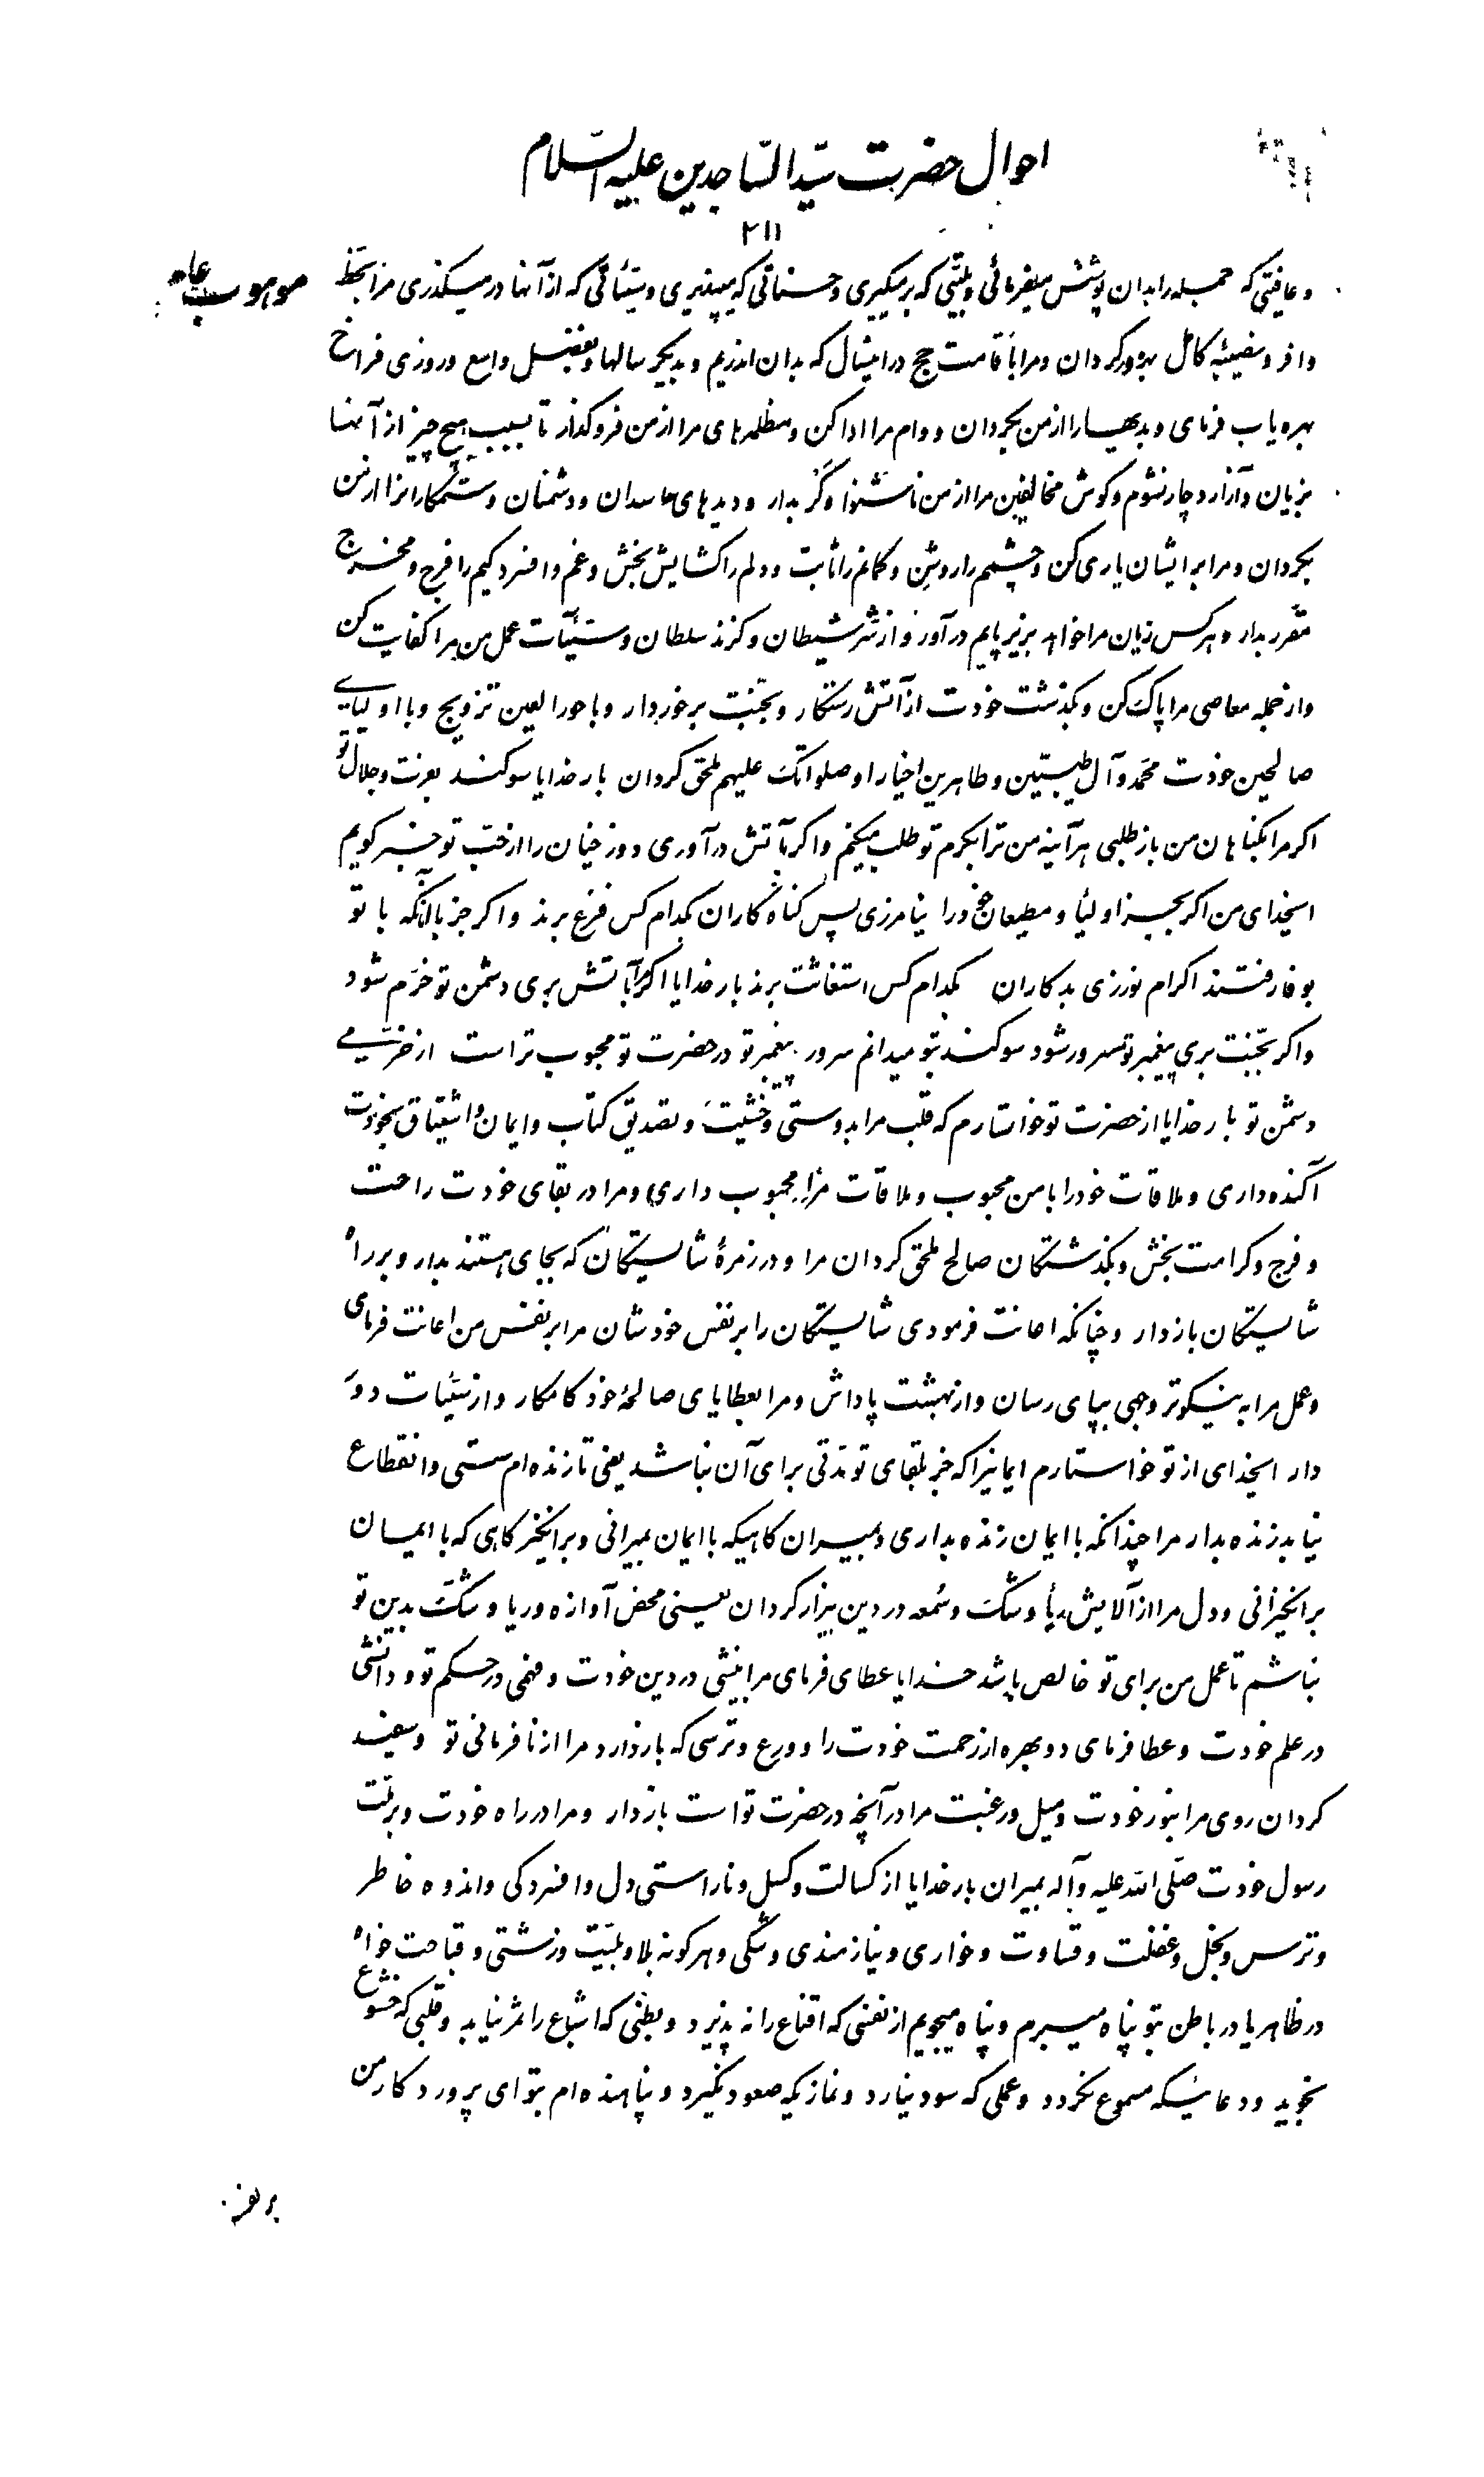 احوال حضرت سیّد السّاجدین علیه السّلام
۲۱۱
و عافیتی که جمله را بدان پوشش میفرمائی و بلیّتی که برمیگیری و حسناتی که میپذیری و سیّئاتی که از آنها درمیگذری مرا بحظّ
موهوب
وافر و نصیبه کامل بهره‌ور گردان و مرا باقامت حج در امسال که بدان اندریم و بدیگر سالها و بفضل واسع و روزی فراخ
بهره یاب فرمای و بدیهها را از من بگردان و وام مرا ادا کن و مظلمه‌های مرا از من فرو گذار تا بسبب هیچ چیز از آنها
بزیان و آزار دچار نشوم و گوش مخالفین مرا از من ناشنوا و کر بدار و دیدهای حاسدان و دشمنان و ستمکارانرا از من
بگردان و مرا بر ایشان یاری کن و چشمم را روشن و گمانم را ثابت و دلم را گشایش بخش و غم و افسردگیم را فرج و مخرج
مقرر بدار و هر کس زیان مرا خواهد بزیر پایم در آور و از شرّ شیطان و گزند سلطان و سیّئات عمل من مرا کفایت کن
و از جمله معاصی مرا پاک کن و بگذشت خودت از آتش رستگار و بجنّت برخوردار و با حور العین تزویج و با اولیای
صالحین خودت محمّد و آل طیبین و طاهرین اخیار او صلواتک علیهم ملحق گردان بار خدایا سوگند بعزت و جلال تو
اگر مرا بگناهان من باز طلبی هر آینه من ترا بکرم تو طلب میکنم و اگر بآتش در آوری دوزخیان را از حبّ تو خبر گویم
ایخدای من اگر بجز اولیا و مطیعان خود را نیامرزی پس گناه کاران بکدام کس فزع برند و اگر جز بآنانکه با تو
بوفا رفتند اکرام نورزی بدکاران بکدام کس استغاثت برند بار خدایا اگر مرا بآتش بری دشمن تو خرّم شود
و اگر بجنّت بری پیغمبر تو مسرور شود سوگند بتو میدانم سرور پیغمبر تو در حضرت تو محبوب تر است از خرّمی
دشمن تو بار خدایا از حضرت تو خواستارم که قلب مرا بدوستی و خشیت و تصدیق کتاب و ایمان و اشتیاق بخودت
آکنده داری و ملاقات خود را با من محبوب و ملاقات مرا محبوب داری و مرا در بقای خودت راحت
و فرج و کرامت بخش و بگذشتگان صالح ملحق گردان مرا و در زمرهٔ شایستگان که بجای هستند بدار و بر راه
شایستگان باز دار و چنانکه اعانت فرمودی شایستگان را بر نفس خودشان مرا بر نفس من اعانت فرمای
و عمل مرا به نیکوتر وجهی بپای رسان و از بهشت پاداش و مرا بعطایای صالحهٔ خود کامکار و از سیّئات دور
دار ایخدای از تو خواستارم ایمانیرا که جز بلقای تو مدّتی برای آن نباشد یعنی تا زنده‌ام سستی و انقطاع
نیابد زنده بدار مرا چندانکه با ایمان زنده بداری و بمیران گاهیکه با ایمان بمیرانی و برانگیز گاهی که با ایمان
برانگیزانی و دل مرا از آلایش ریا و شک و سُمعه در دین بیزار گردان یعنی محض آوازه و ریا و شکّ بدین تو
نباشم تا عمل من برای تو خالص باشد خدایا عطای فرمای مرا بینشی در دین خودت و فهمی در حکم تو و دانشی
در علم خودت و عطا فرمای دو بهره از رحمت خودت را و ورع و ترسی که باز دارد مرا از نافرمانی تو و سفید
گردان روی مرا بنور خودت و میل و رغبت مرا در آنچه در حضرت تو است باز دار و مرا در راه خودت و بر ملّت
رسول خودت صلّی الله علیه و آله بمیران بار خدایا از کسالت و کسل و ناراستی دل و افسردگی و اندوه خاطر
و ترس و بخل و غفلت و قساوت و خواری و نیازمندی و تنگی و هر گونه بلا و بلیّت و زشتی و قباحت خواه
در ظاهر یا در باطن بتو پناه میبرم و پناه میجویم از نفسی که اقناع را نه پذیرد و بطنی که اشباع را مثر نیاید و قلبی که خشوع
نجوید و دعائیکه مسموع نگردد و عملی که سود نیارد و نمازیکه صعود نگیرد و پناهنده‌ام بتو ای پروردگار من